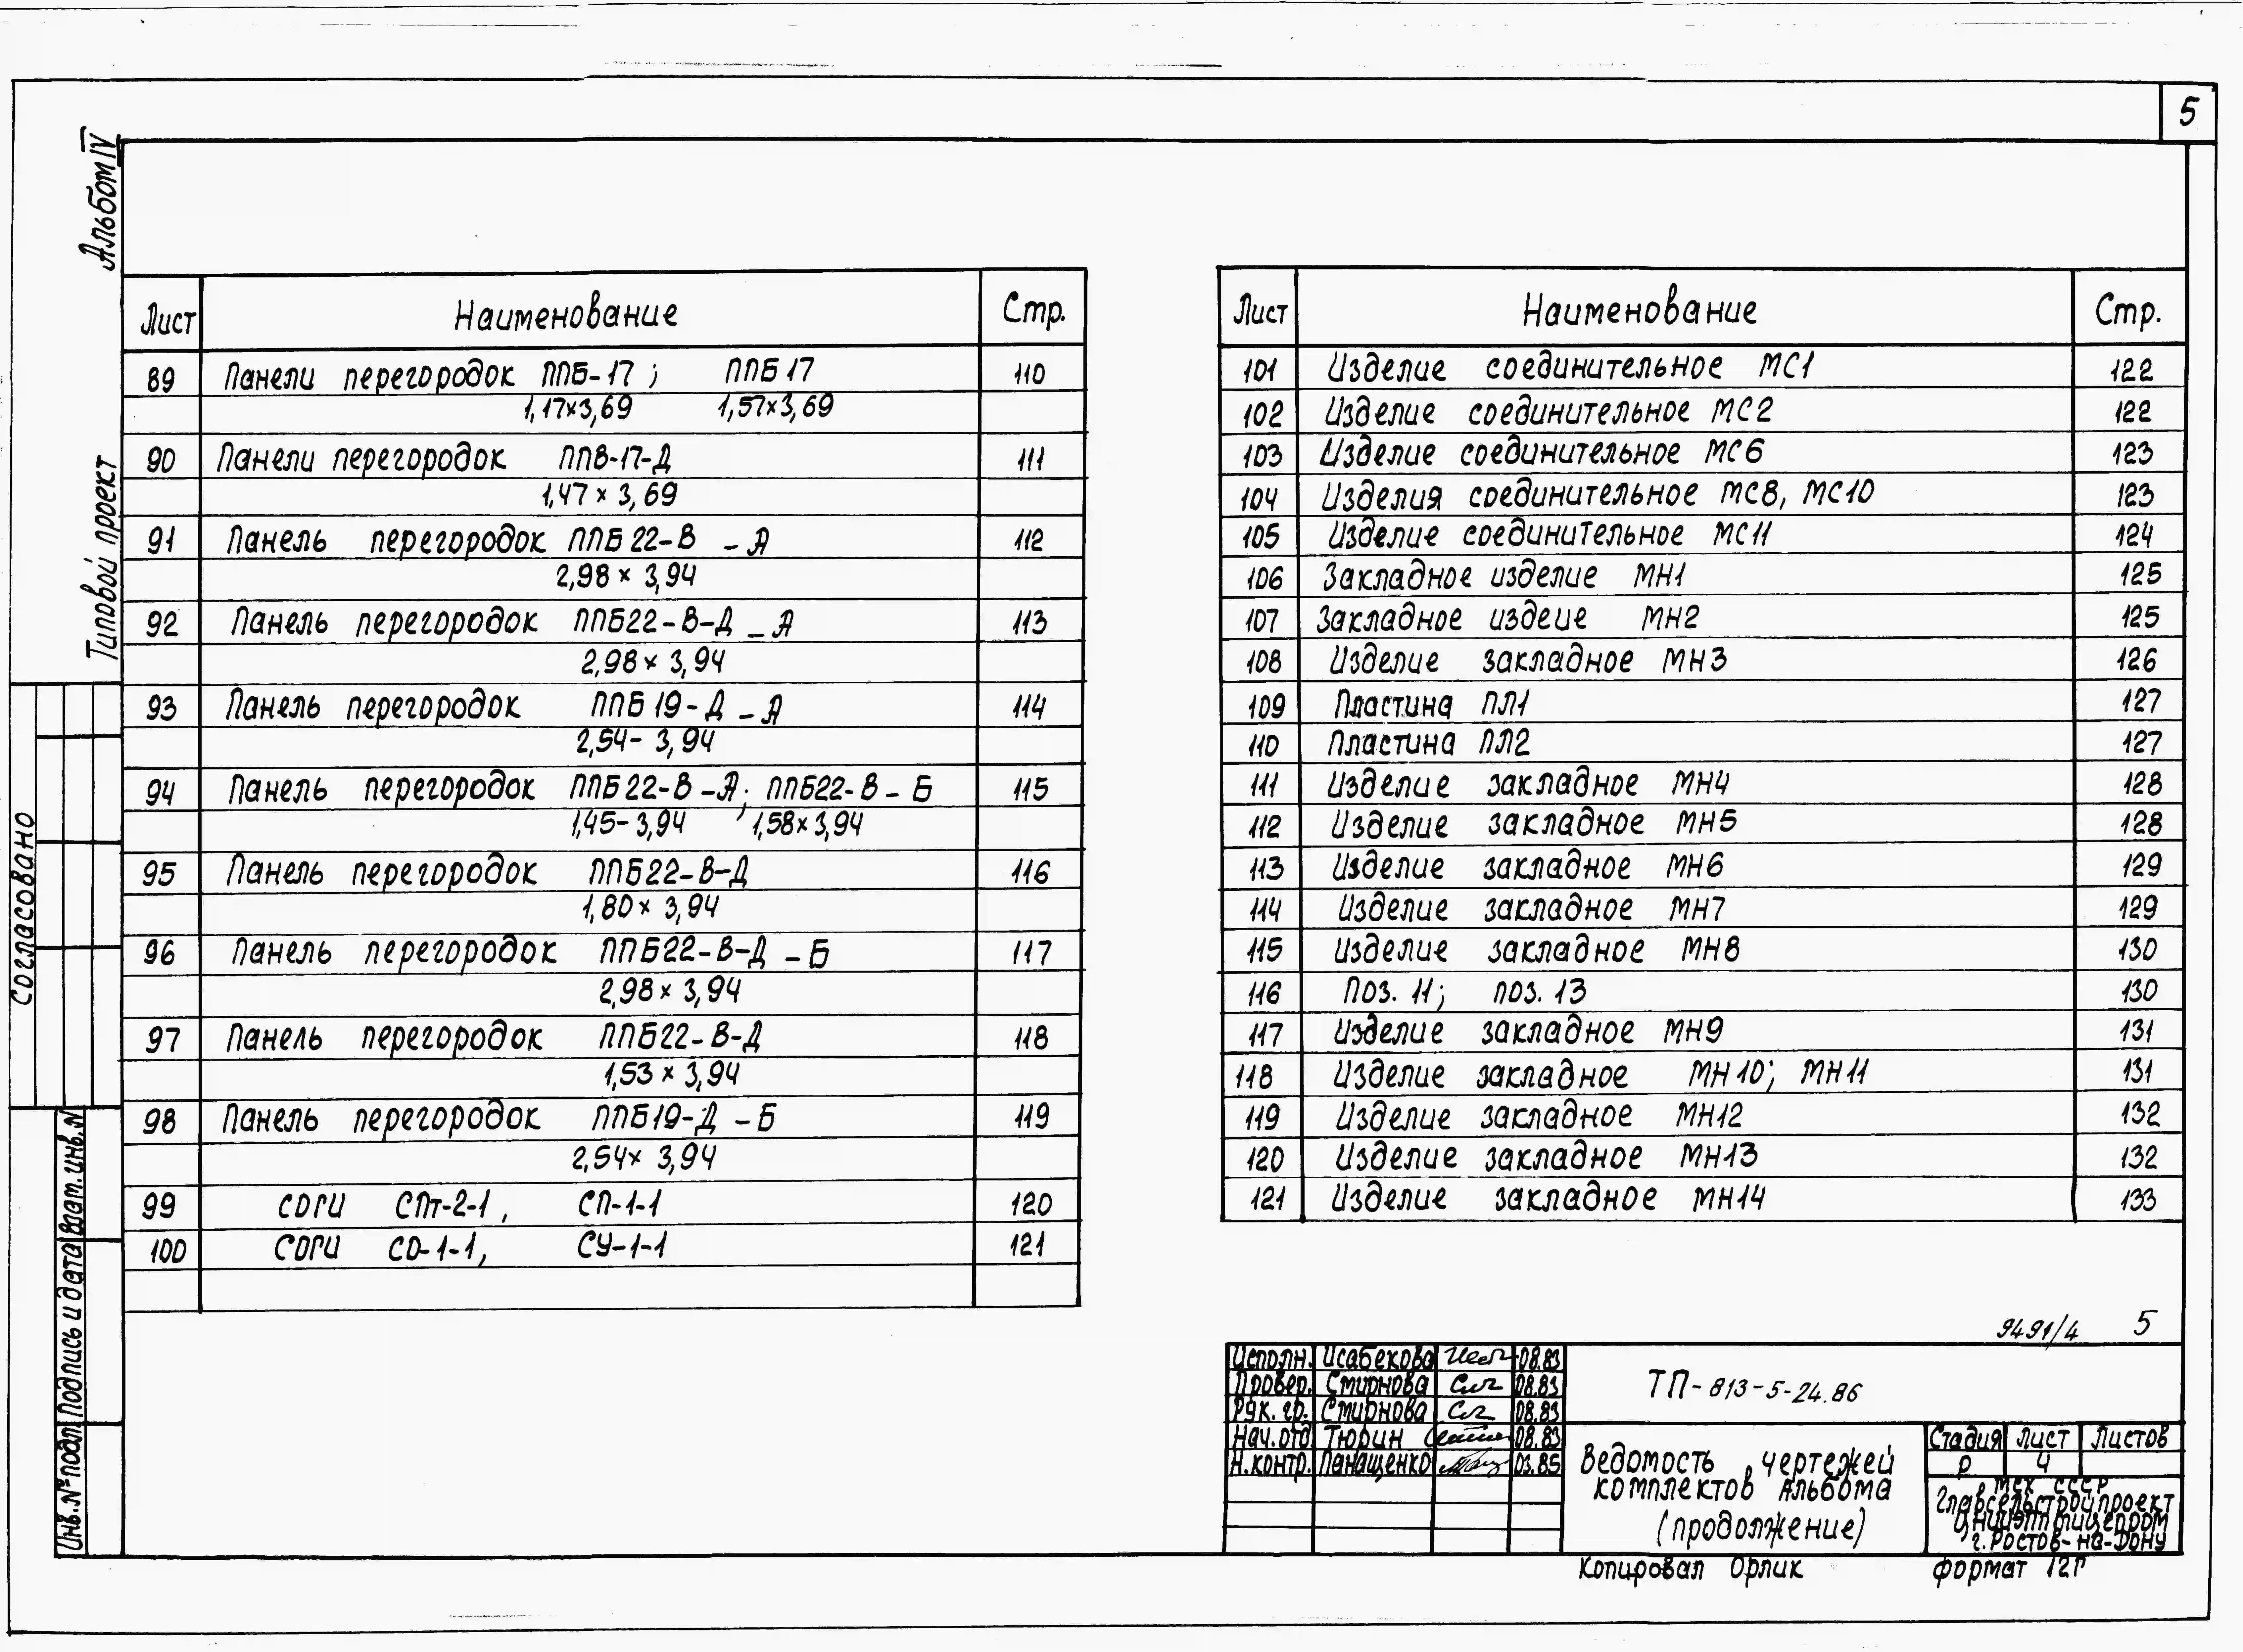 5
Альбом IV
Типовой проект
Согласовано
Взам. инв. N
Подпись и дата
Инв. № подл.
Лист Наименование Стр.
89 Панели перегородок ППБ-17; ППБ17 110
1,17х3,69 1,57х3,69
90 Панели перегородок ППВ-17-Д 111
1,47 х 3,69
91 Панель перегородок ППБ22-В - А 112
2,98 х 3,94
92 Панель перегородок ППБ22-В-Д - А 113
2,98 х 3,94
93 Панель перегородок ППБ19-Д - А 114
2,54- 3,94
94 Панель перегородок ППБ22-В-А; ППБ22-В-Б 115
1,45-3,94 1,58х3,94
95 Панель перегородок ППБ22-В-Д 116
1,80х 3,94
96 Панель перегородок ППБ22-В-Д - Б 117
2,98х 3,94
97 Панель перегородок ППБ22-В-Д 118
1,53 х 3,94
98 Панель перегородок ППБ19-Д - Б 119
2,54х 3,94
99 СОГИ СПт-2-1, СП-1-1 120
100 СОГИ СО-1-1, СУ-1-1 121
Лист Наименование Стр.
101 Изделие соединительное МС1 122
102 Изделие соединительное МС2 122
103 Изделие соединительное МС6 123
104 Изделия соединительное МС8, МС10 123
105 Изделие соединительное МС11 124
106 Закладное изделие МН1 125
107 Закладное издеие МН2 125
108 Изделие закладное МН3 126
109 Пластина ПЛ1 127
110 Пластина ПЛ2 127
111 Изделие закладное МН4 128
112 Изделие закладное МН5 128
113 Изделие закладное МН6 129
114 Изделие закладное МН7 129
115 Изделие закладное МН8 130
116 Поз. 11; поз. 13 130
117 Изделие закладное МН9 131
118 Изделие закладное МН10; МН11 131
119 Изделие закладное МН12 132
120 Изделие закладное МН13 132
121 Изделие закладное МН14 133
9491/4 5
Исполн. Исабекова 08.83
Провер. Смирнова 08.83
Рук. гр. Смирнова 08.83
Нач. отд Тюрин 08.83
Н. контр. Панащенко 03.85
ТП-813-5-24.86
Ведомость чертежей
комплектов Альбома
(продолжение)
Стадия Лист Листов
Р 4
МСХ СССР
Главсельстройпроект
ЦНИИЭПптицепром
г. Ростов-на-Дону
Копировал Орлик формат 12Г